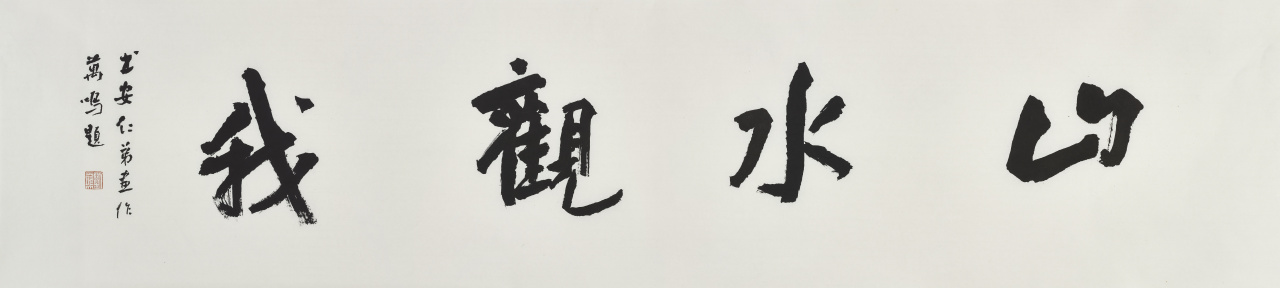 山水觀我
书安仁弟画作
萬鳴題